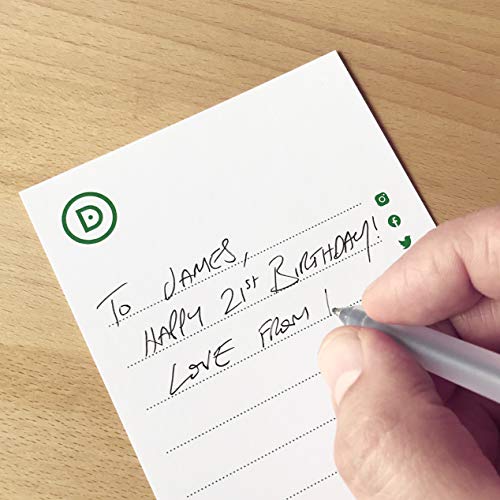 D
To JAMES,
HAPPY 21st BIRTHDAY!
LOVE FROM